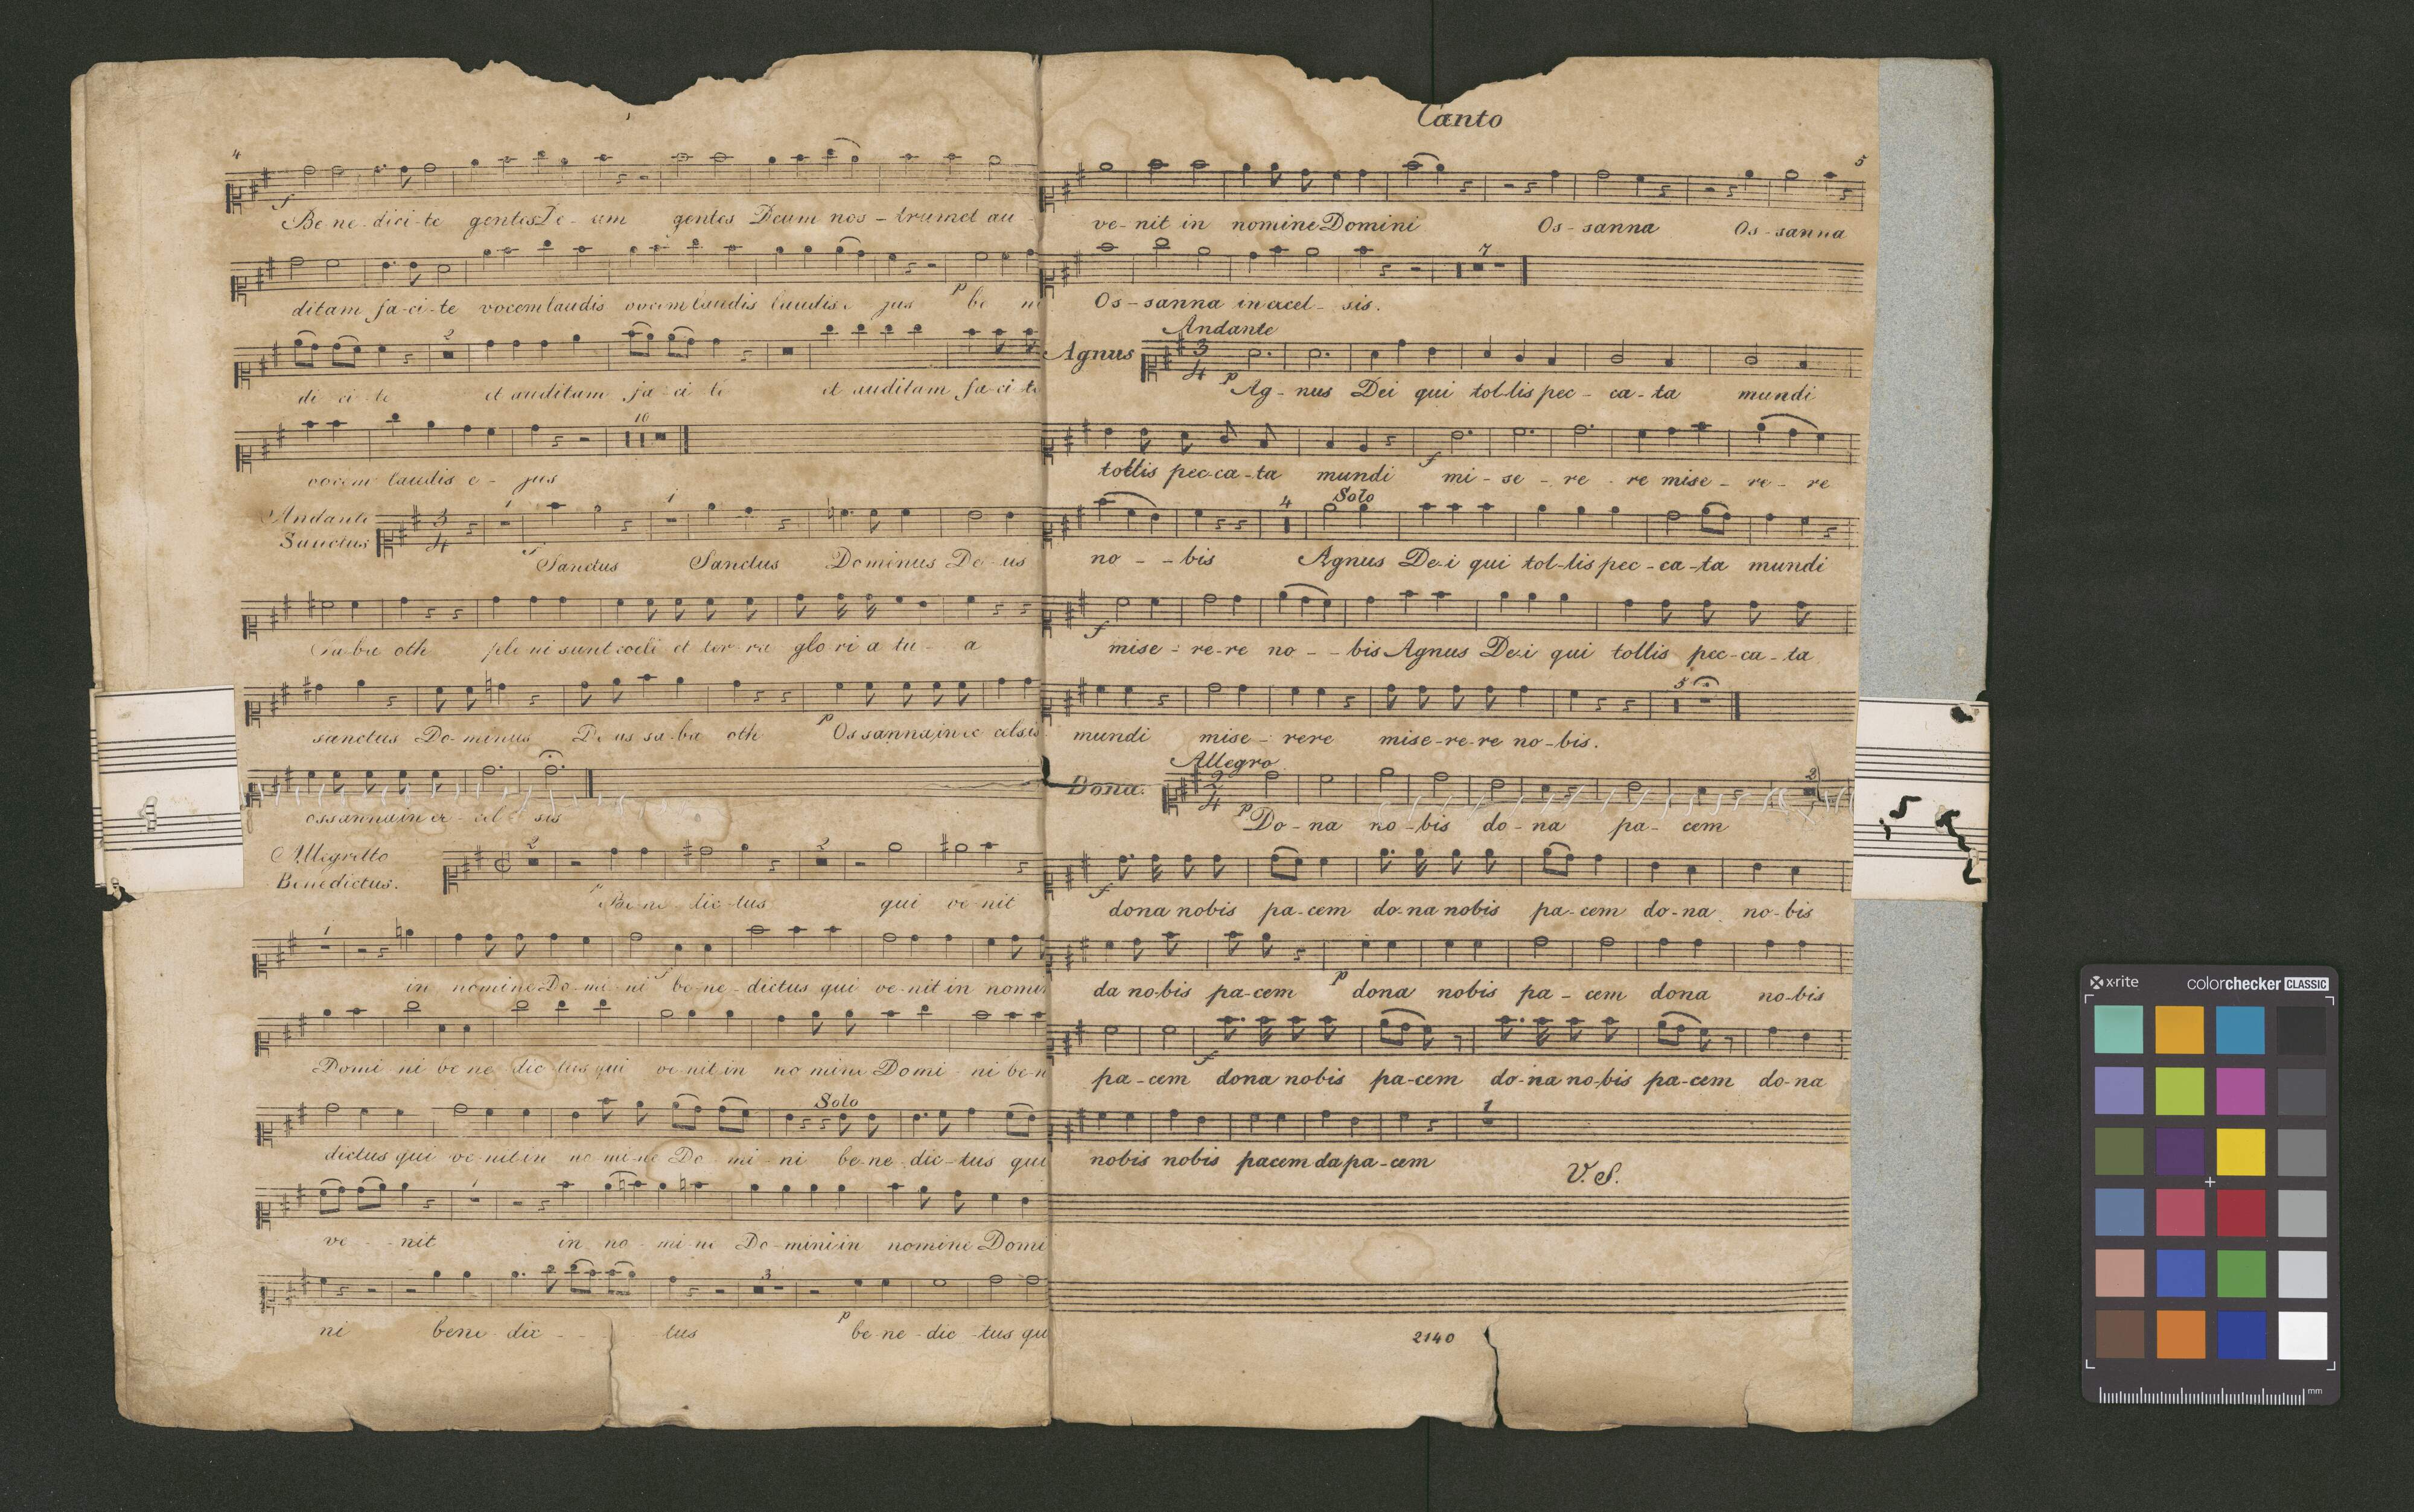 4
Be-ne-dici-te gentes De-um gentes Deum nos-trum et au-
ditam fa-ci-te vocem laudis vocem laudis laudis e jus p be ne
2
di ci-te et auditam fa-ci te et auditam fa-ci-te
10
vocem laudis e-jus
Andante
Sanctus 3/4 1 1
f Sanctus Sanctus Dominus De-us
Sa-ba oth ple ni sunt coeli et ter-ra glo ri a tu-a
sanctus Do-minus De us sa-ba oth p Ossanna in ex celsis
ossanna in ex-cel sis
Allegretto
Benedictus. 2 2
p Be-ne-dic-tus qui ve-nit
1
in nomine Do-mi-ni f be-ne-dictus qui ve-nit in nomin
Domi ni be ne dic tus qui ve-nit in no mine Domi-ni be-n
Solo
dictus qui ve-nit in no-mi-ne Do-mi-ni be-ne-dic-tus qui
1
ve--nit in no-mi-ne Do-mini in nomine Domi
3
ni bene-dic---tus p be-ne-dic-tus qu
Canto
5
ve-nit in nomine Domini Os-sanna Os-sanna
7
Os-sanna in excel-sis.
Andante
Agnus 3/4
p Ag-nus Dei qui tol-lis pec-ca-ta mundi
tollis pec-ca-ta mundi f mi-se-re-re mise-re-re
4 Solo
no--bis Agnus De-i qui tol-lis pec-ca-ta mundi
f mise-re-re no--bis Agnus De-i qui tollis pec-ca-ta
5
mundi mise-rere mise-re-re no-bis.
Allegro
Dona. 2/4 2
p Do-na no-bis do-na pa-cem
f dona nobis pa-cem do-na nobis pa-cem do-na no-bis
da no-bis pa-cem p dona nobis pa-cem dona no-bis
pa-cem f dona nobis pa-cem do-na no-bis pa-cem do-na
1
nobis nobis pacem da pa-cem
V. S.
2140
x-rite colorchecker CLASSIC
mm